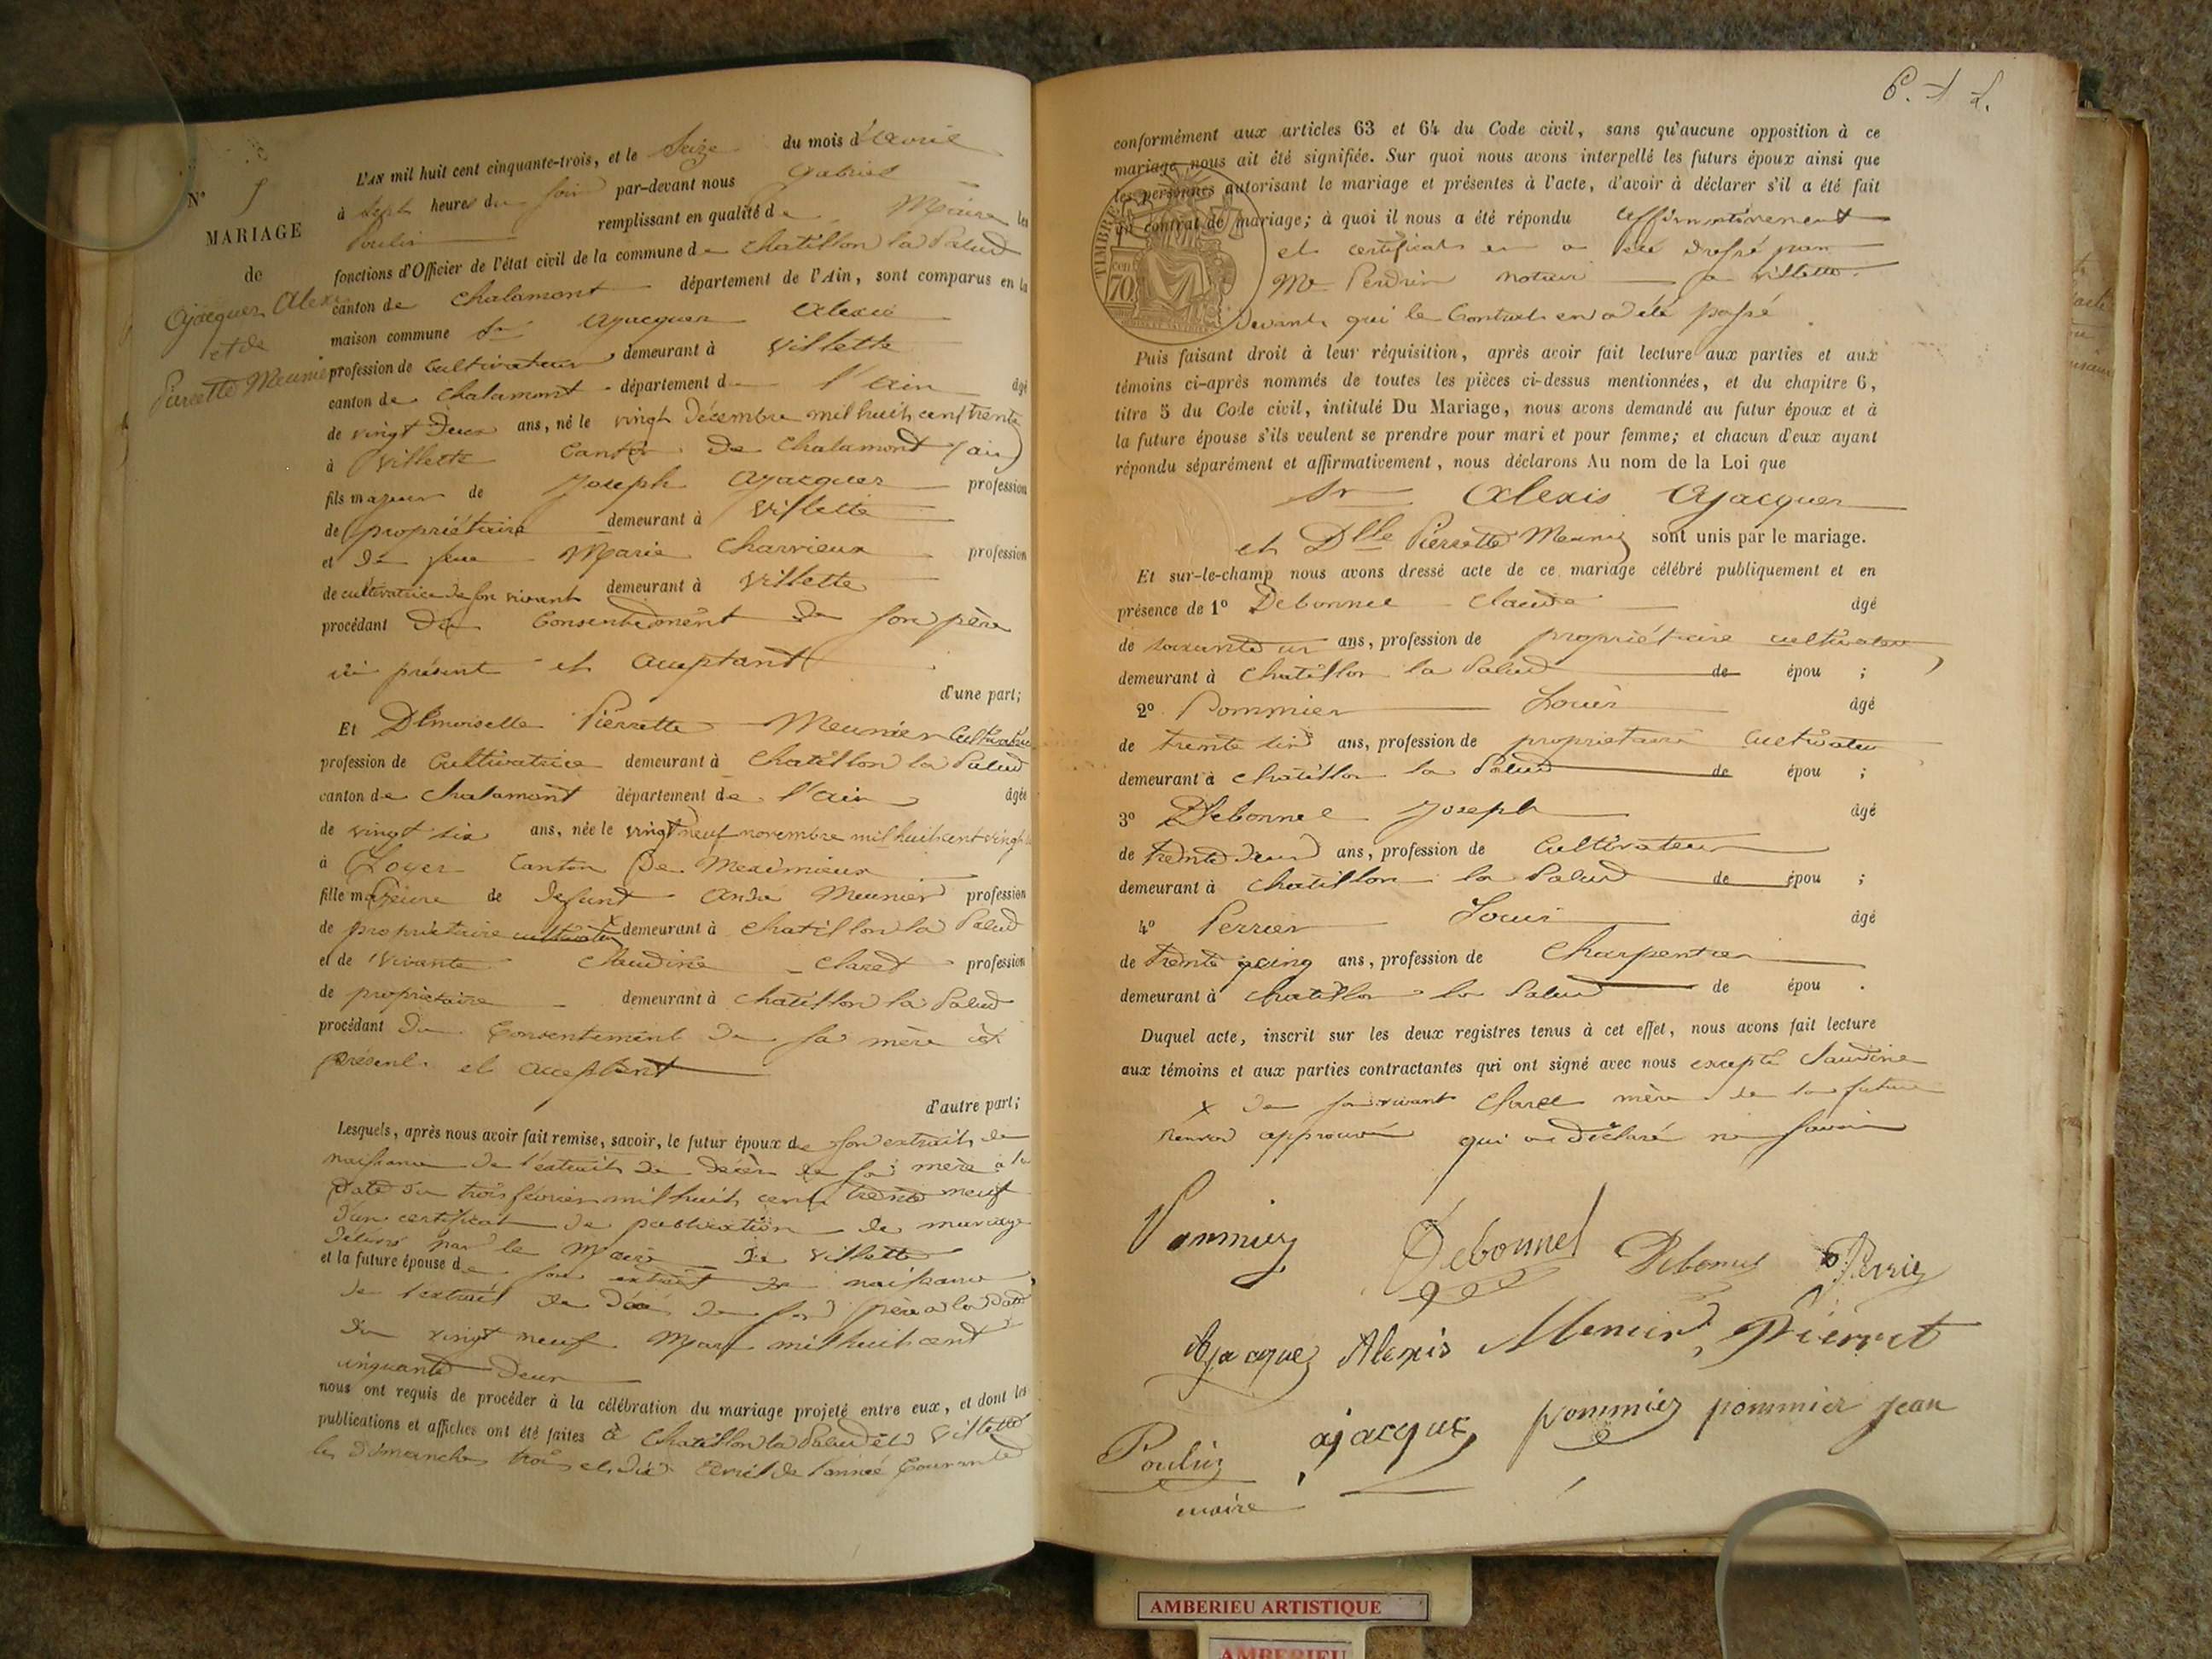 N° 5
MARIAGE
de
Ajacquer Alexi
et de
Pierette Meunier
L'AN mil huit cent cinquante-trois, et le Seize du mois d'avril
à Sept heures du soir par-devant nous Gabriel
Poulin remplissant en qualité de Maire les
fonctions d'Officier de l'état civil de la commune de Chatillon la Palud
canton de Chalamont département de l'Ain, sont comparus en la
maison commune Sr Ajacquer Alexis
profession de Cultivateur demeurant à Villette
canton de Chalamont département de l'ain âgé
de vingt deux ans, né le vingt décembre mil huit cent trente
à Villette Canton de Chalamont (ain)
fils majeur de Joseph Ajacquer profession
de propriétaire demeurant à Villette
et de feue Marie Charvieux profession
de cultivatrice de son vivant demeurant à Villette
procédant du Consentement de son père
ici présent et acceptant
d'une part;
Et Dlmoiselle Pierrette Meunier Cultivatrice
profession de Cultivatrice demeurant à Chatillon la Palud
canton de Chalamont département de l'ain âgée
de vingt six ans, née le vingt neuf novembre mil huit cent vingt
à Loyer Canton De Meximieux
fille majeure de defunt André Meunier profession
de propriétaire cultivateur x demeurant à Chatillon la Palud
et de vivante Claudine Claret profession
de propriétaire demeurant à Chatillon la Palud
procédant du Consentement de sa mère ici
présent et acceptent
d'autre part;
Lesquels, après nous avoir fait remise, savoir, le futur époux de son extrait de
naissance de l'extrait de décès de sa mère à la
date du trois février mil huit cent trente neuf
d'un certificat de publication de mariage
délivré par le Maire de Villette
et la future épouse de son extrait de naissance,
de l'extrait de décès de son père a la date
du vingt neuf Mars mil huit cent
cinquante deux
nous ont requis de procéder à la célébration du mariage projeté entre eux, et dont les
publications et affiches ont été faites à Chatillon la Palud et Villette
les dimanches trois et dix avril de l'année Courante
conformément aux articles 63 et 64 du Code civil, sans qu'aucune opposition à ce
mariage nous ait été signifiée. Sur quoi nous avons interpellé les futurs époux ainsi que
les personnes autorisant le mariage et présentes à l'acte, d'avoir à déclarer s'il a été fait
un contrat de mariage; à quoi il nous a été répondu affirmativement
et certificat en a été dressé par
Me Perdrix notaire à Villette
devant qui le Contrat en a été passé
TIMBRE
cen
70
Puis faisant droit à leur réquisition, après avoir fait lecture aux parties et aux
témoins ci-après nommés de toutes les pièces ci-dessus mentionnées, et du chapitre 6,
titre 5 du Code civil, intitulé Du Mariage, nous avons demandé au futur époux et à
la future épouse s'ils veulent se prendre pour mari et pour femme; et chacun d'eux ayant
répondu séparément et affirmativement, nous déclarons Au nom de la Loi que
Sr Alexis Ajacquer
et Dlle Pierrette Meunier sont unis par le mariage.
Et sur-le-champ nous avons dressé acte de ce mariage célébré publiquement et en
présence de 1° Debonnel Claude âgé
de soixante un ans, profession de propriétaire cultivateur
demeurant à Chatillon la Palud de épou ;
2° Pommier Louis âgé
de trente six ans, profession de propriétaire Cultivateur
demeurant à Chatillon la Palud de épou ;
3° Debonnel Joseph âgé
de trente deux ans, profession de Cultivateur
demeurant à Chatillon la Palud de épou ;
4° Perrier Louis âgé
de trente cinq ans, profession de Charpentier
demeurant à Chatillon la Palud de épou .
Duquel acte, inscrit sur les deux registres tenus à cet effet, nous avons fait lecture
aux témoins et aux parties contractantes qui ont signé avec nous excepté Claudine
x de son vivant Claret mère de la future
renvoi approuvé qui a déclaré ne savoir
Pommier Debonnel Debonnel Perrier
Ajacquez Alexis Menier Pierret
ajacque pommiez pommier jean
Poulin
maire
AMBERIEU ARTISTIQUE
AMBERIEU